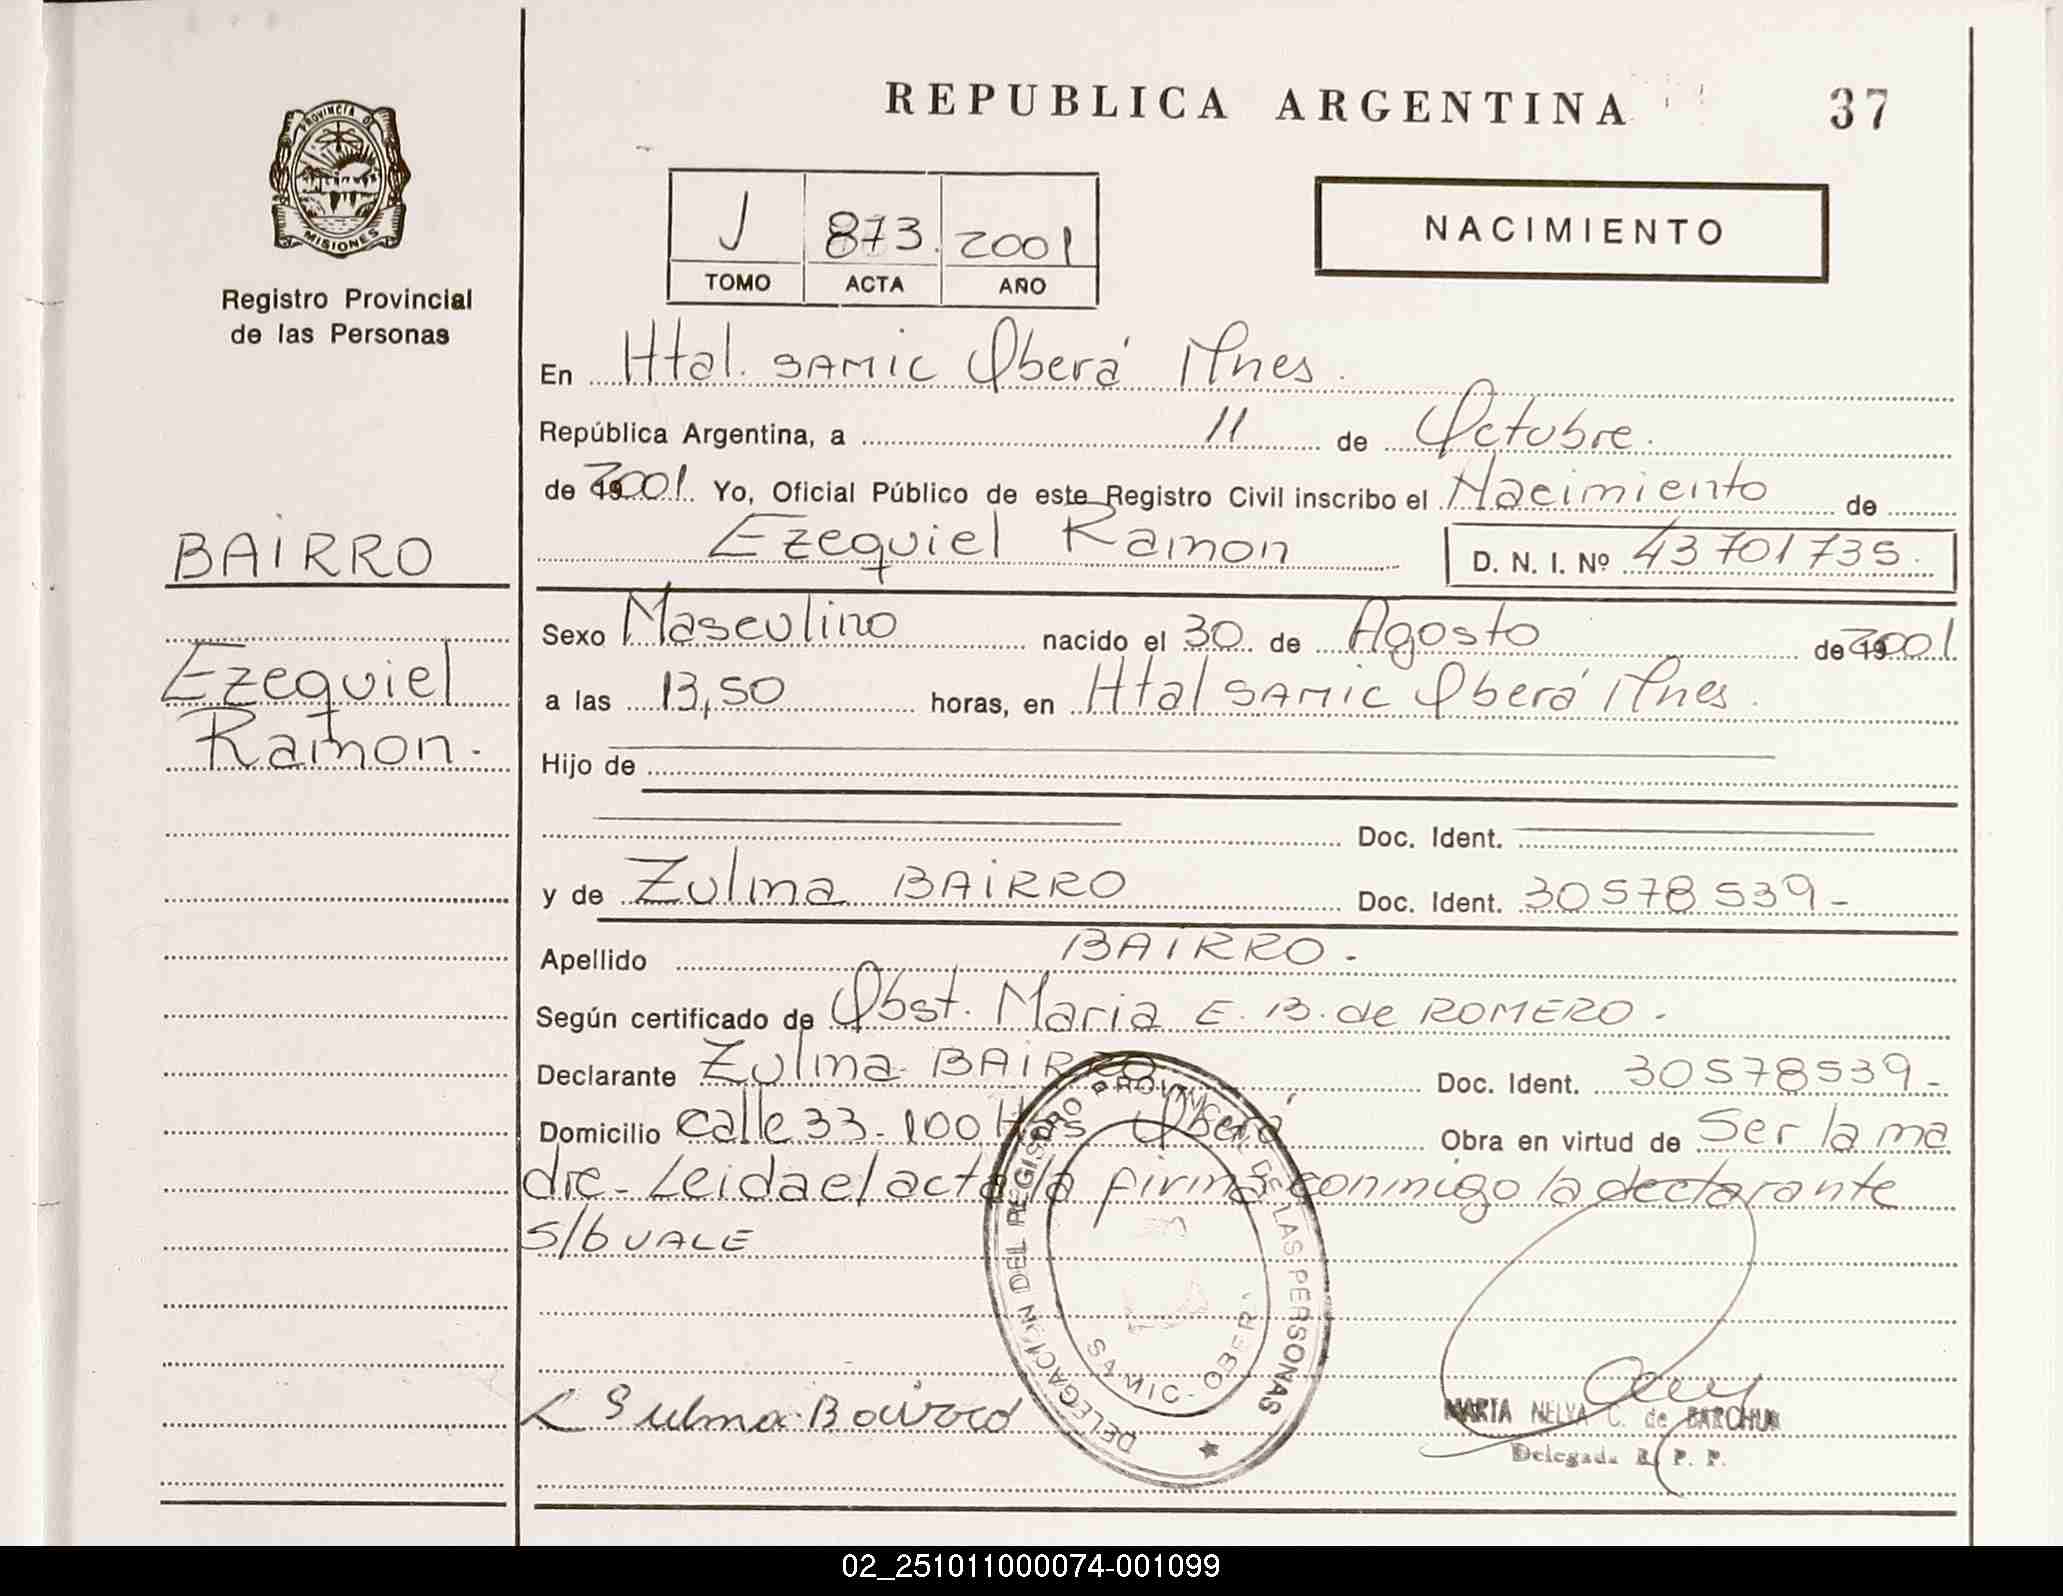 REPUBLICA ARGENTINA 37
PROVINCIA DE
MISIONES
Registro Provincial
de las Personas
J 873 2001
TOMO ACTA AÑO
NACIMIENTO
En Htal. SAMIC Oberá Mnes.
República Argentina, a 11 de Octubre.
de 2001. Yo, Oficial Público de este Registro Civil inscribo el Nacimiento de
Ezequiel Ramon D. N. I. Nº 43701735.
BAIRRO
Ezequiel
Ramon.
Sexo Masculino nacido el 30 de Agosto de 2001
a las 13,50 horas, en Htal SAMIC Oberá Mnes.
Hijo de
Doc. Ident.
y de Zulma BAIRRO Doc. Ident. 30578539-
Apellido BAIRRO.
Según certificado de Obst. Maria E. B. de ROMERO.
Declarante Zulma BAIRRO Doc. Ident. 30578539-
Domicilio calle 33-100 Has Oberá Obra en virtud de Ser la ma
dre- Leida el acta la firma conmigo la declarante
S/b VALE
DELEGACION DEL REGISTRO PROVINCIAL DE LAS PERSONAS
SAMIC-OBERA
Sulma Bairro
MARTA NELVA C. de BARCHUK
Delegada R. P. P.
02_251011000074-001099